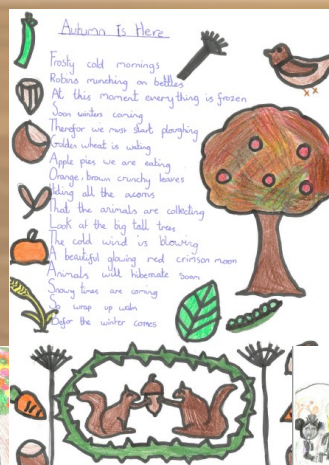 Autumn Is Here
Frosty cold mornings
Robins munching on bettles
At this moment everything is frozen
Soon winters coming
Therefor we must start ploughing
Golden wheat is wating
Apple pies we are eating
Orange, brown crunchy leaves
Hiding all the acorns
That the animals are collecting
Look at the big tall tree
The cold wind is blowing
A beautiful glowing red crimson moon
Animals will hibernate soon
Snowy times are coming
So wrap up walm
Befor the winter comes